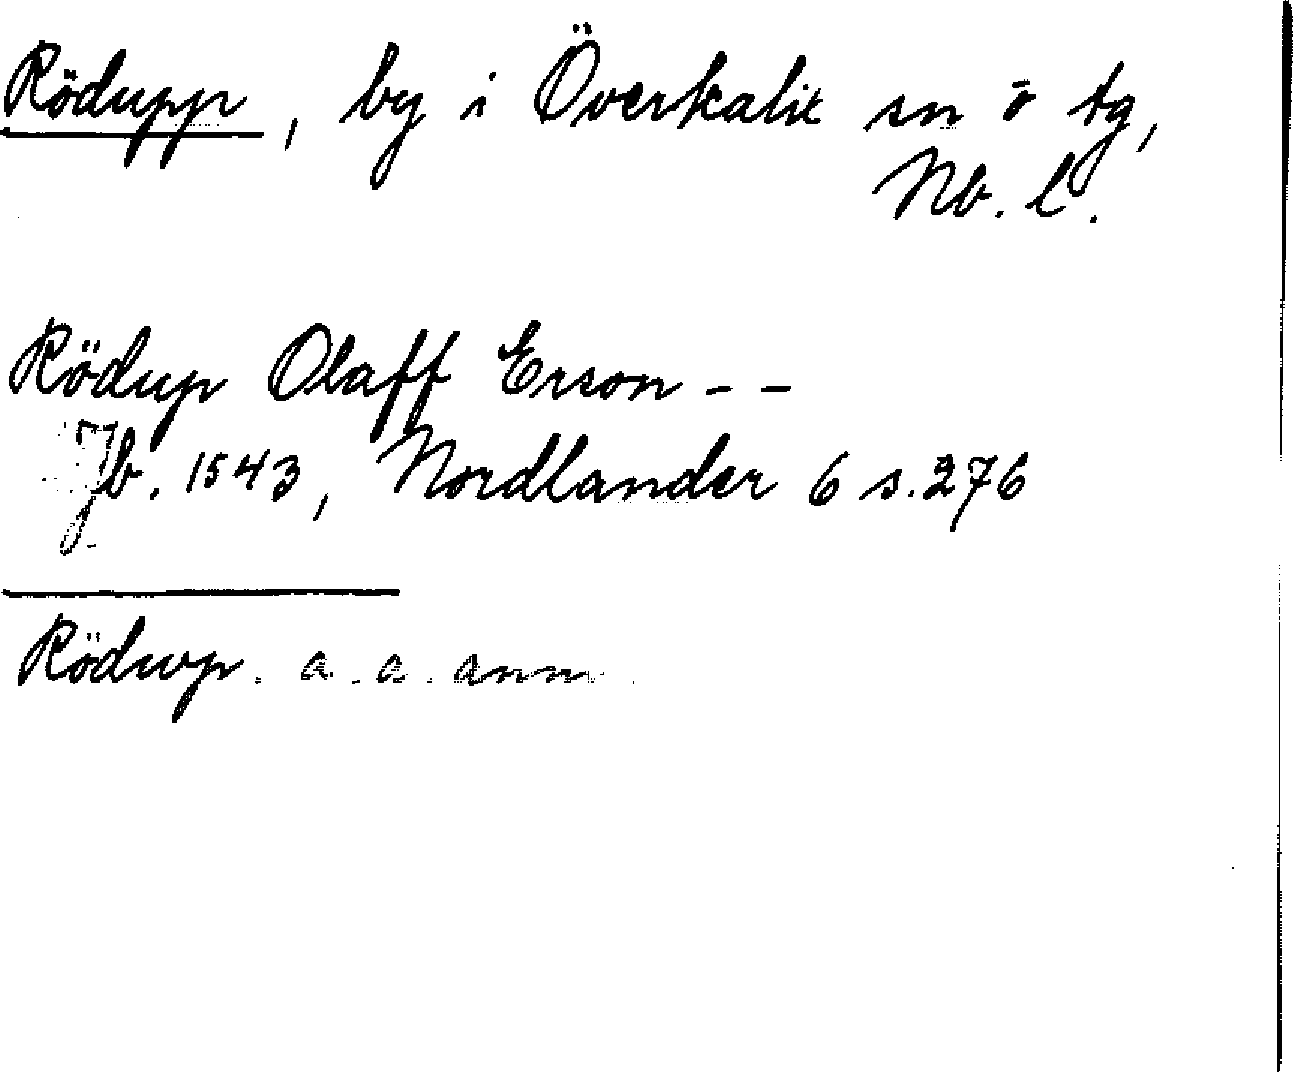 Rödupp, by i Överkalix sn o tg,
Nb. l.
Rödup Olaff Erson - -
Jb. 1543, Nordlander 6 s. 276
Rödwp. a. a. anm.